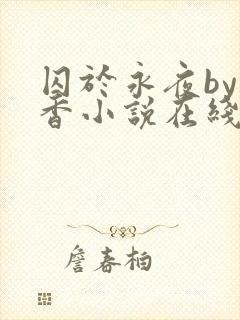 囚於永夜by
香小說在綫
詹春柏